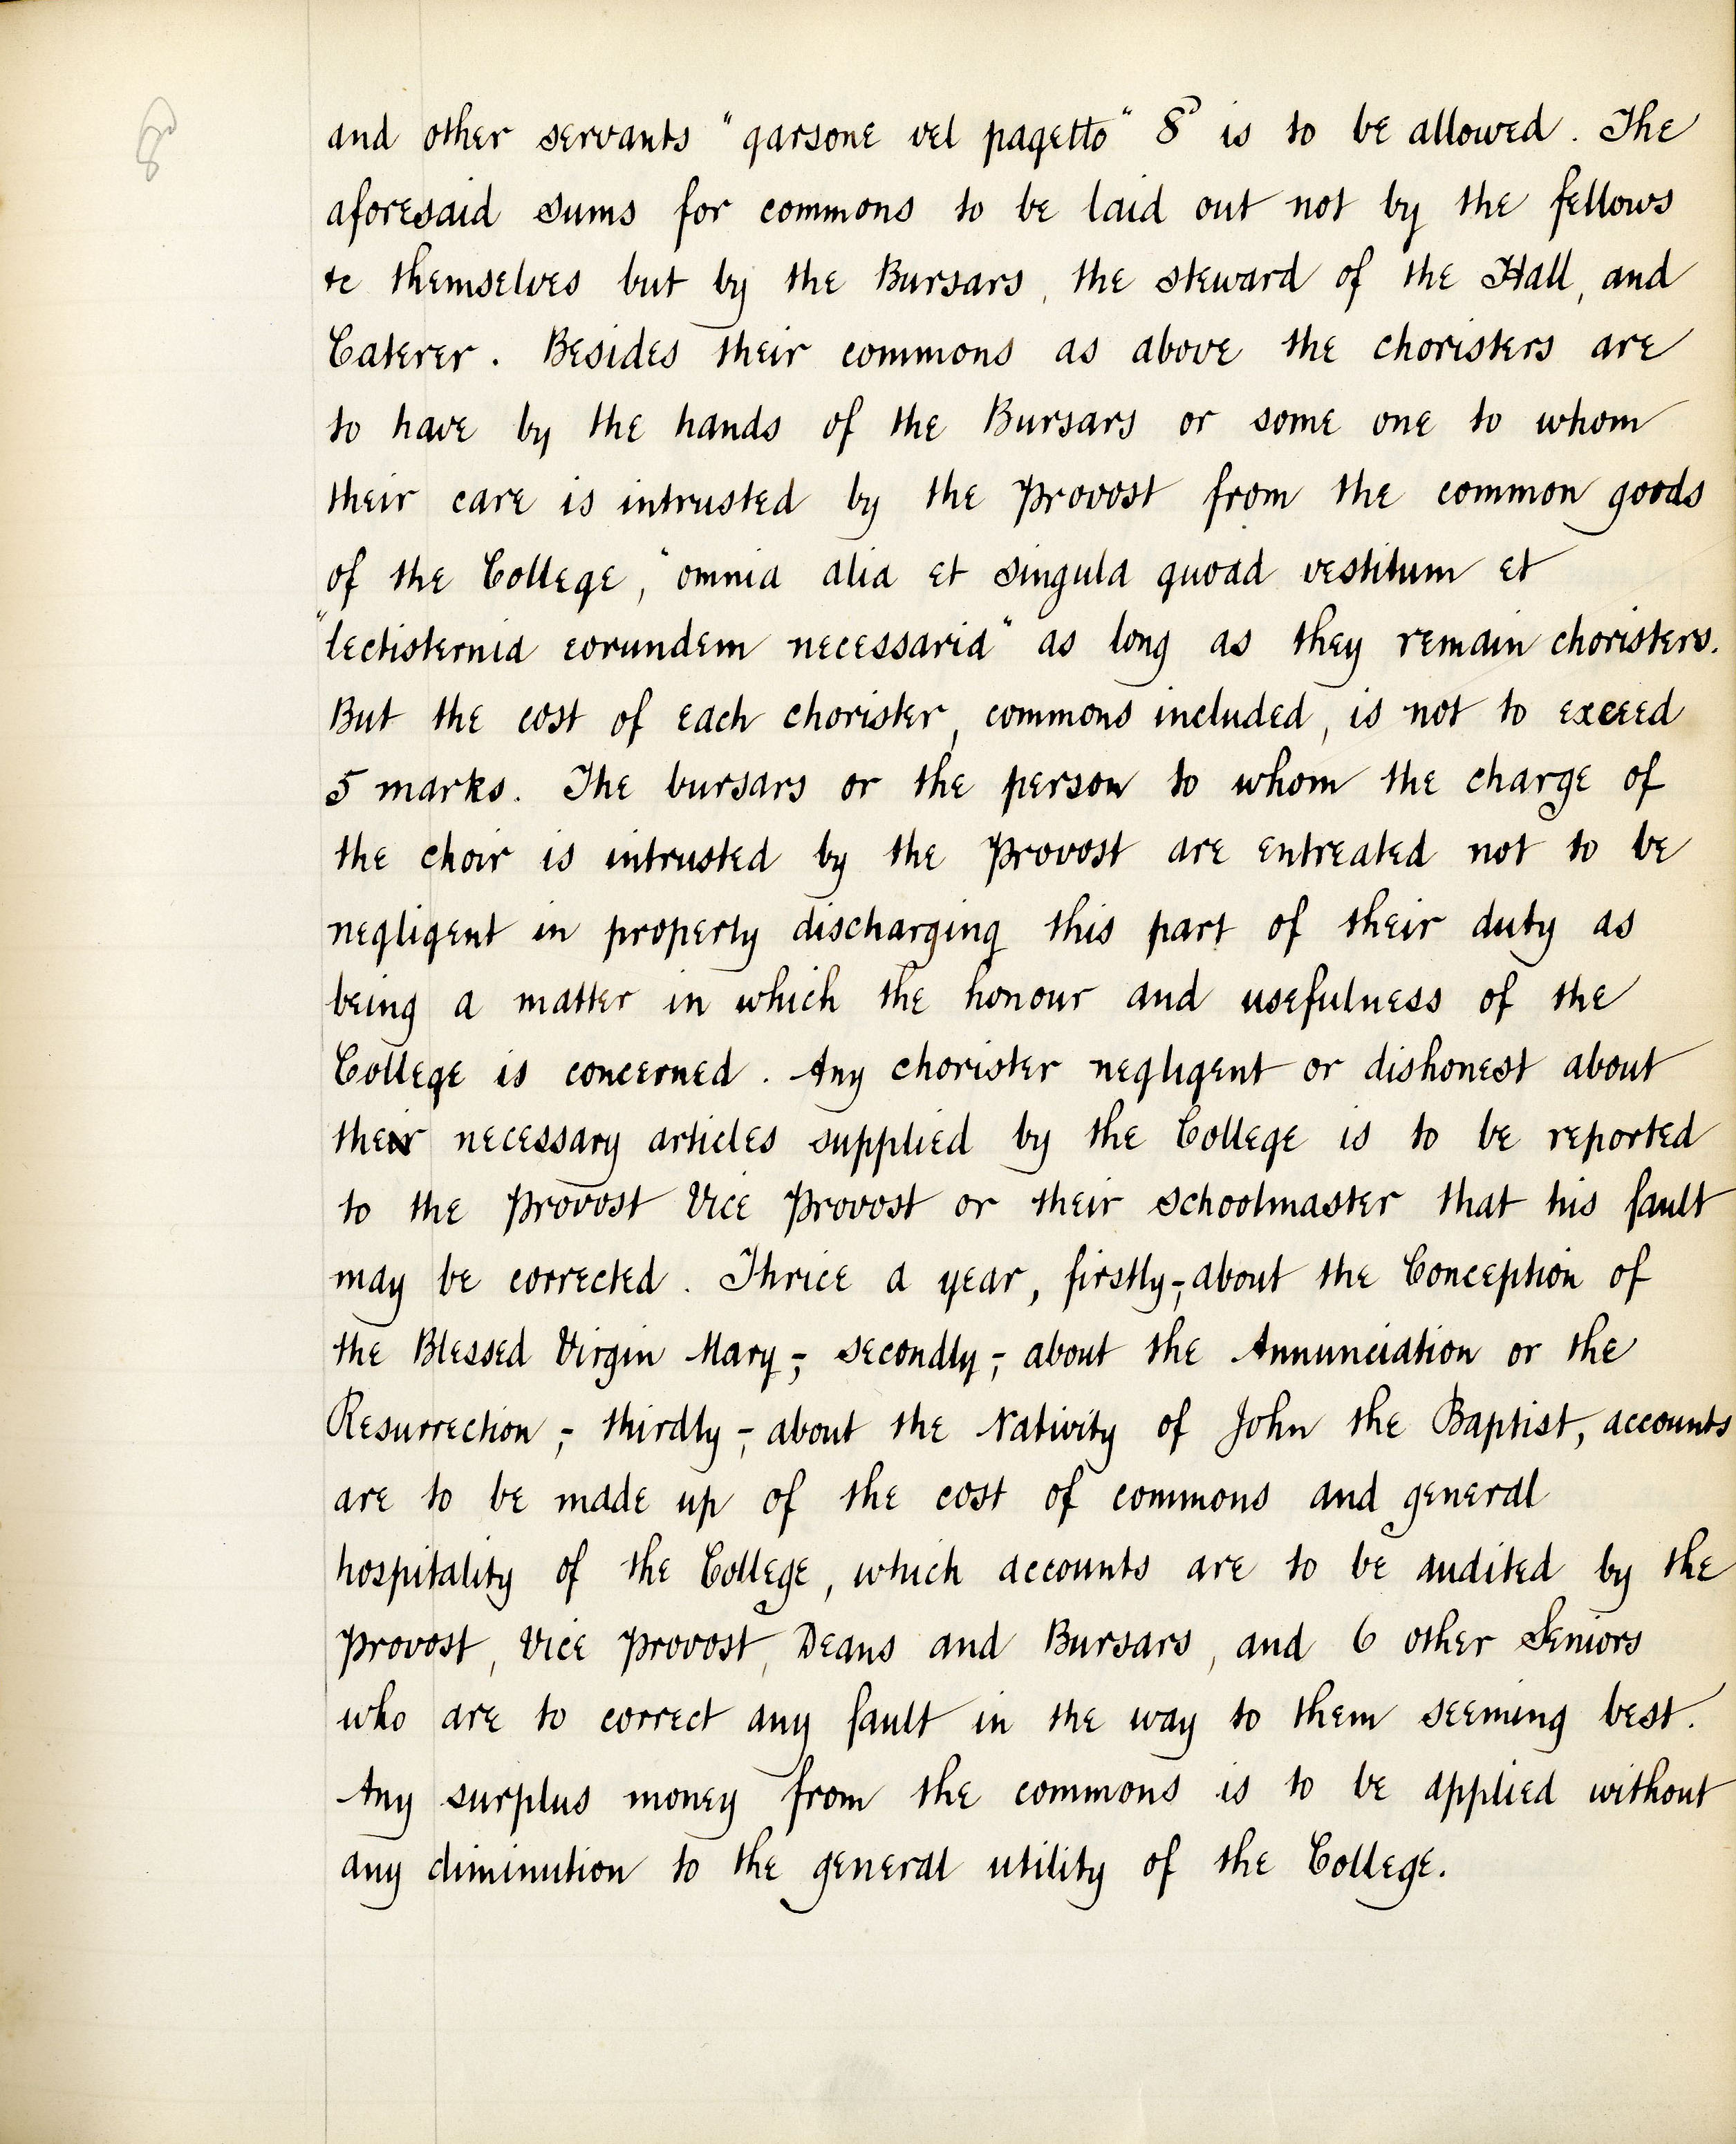 8d
and other servants "garsone vel pagetto" 8d is to be allowed. The
aforesaid sums for commons to be laid out not by the fellows
&c themselves but by the Bursars, the steward of the Hall, and
Caterer. Besides their commons as above the choristers are
to have by the hands of the Bursars or some one to whom
their care is intrusted by the Provost from the common goods
of the College, "omnia alia et singula quoad vestitum et
"lectisternia eorundem necessaria" as long as they remain choristers.
But the cost of each chorister, commons included, is not to exceed
5 marks. The bursars or the person to whom the charge of
the choir is intrusted by the Provost are entreated not to be
negligent in properly discharging this part of their duty as
being a matter in which the honour and usefulness of the
College is concerned. Any chorister negligent or dishonest about
their necessary articles supplied by the College is to be reported
to the Provost Vice Provost or their schoolmaster that his fault
may be corrected. Thrice a year, firstly,- about the Conception of
the Blessed Virgin Mary,- secondly,- about the Annunciation or the
Resurrection,- thirdly,- about the Nativity of John the Baptist, accounts
are to be made up of the cost of commons and general
hospitality of the College, which accounts are to be audited by the
Provost, Vice Provost, Deans and Bursars, and 6 other Seniors
who are to correct any fault in the way to them seeming best.
Any surplus money from the commons is to be applied without
any diminution to the general utility of the College.